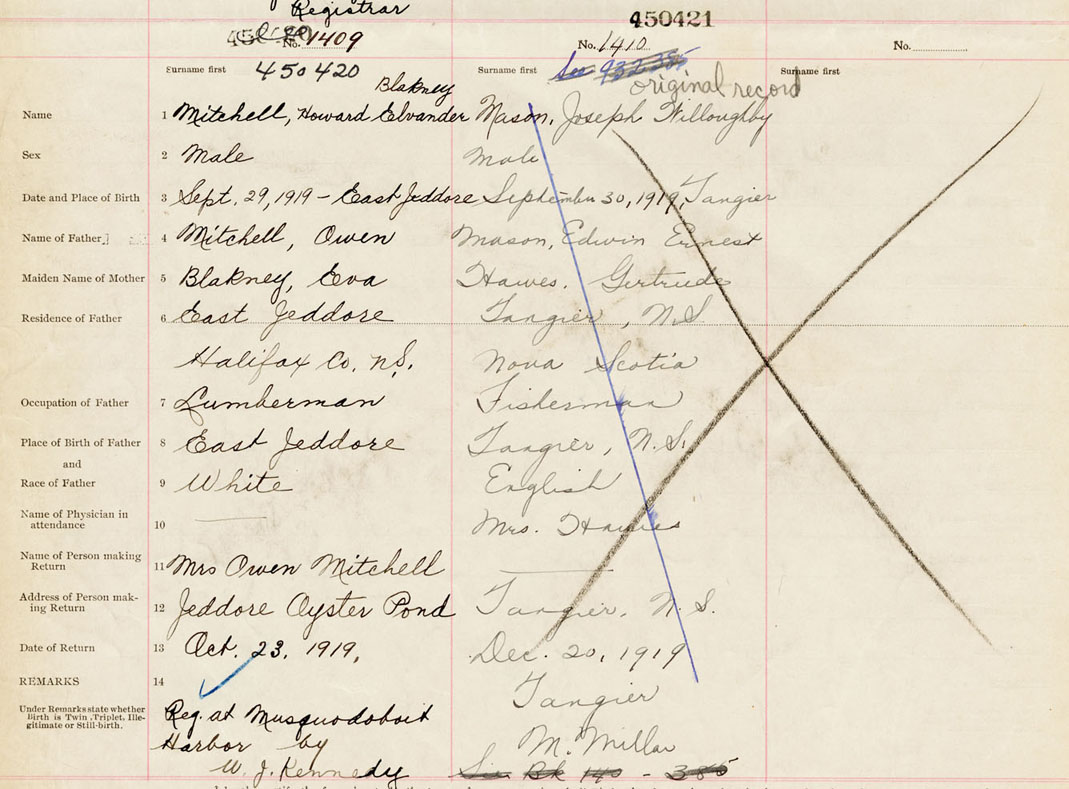 Registrar
450421
No. 1409
No. 1410
No.
Surname first 450420
Surname first See 932385
Surname first
original record
Blakney
Name 1 Mitchell, Howard Elvander Mason, Joseph Willoughby
Sex 2 Male Male
Date and Place of Birth 3 Sept. 29, 1919 - East Jeddore September 30, 1919, Tangier
Name of Father 4 Mitchell, Owen Mason, Edwin Ernest
Maiden Name of Mother 5 Blakney, Eva Hawes. Gertrude
Residence of Father 6 East Jeddore Tangier, N.S.
Halifax Co. N.S. Nova Scotia
Occupation of Father 7 Lumberman Fisherman
Place of Birth of Father 8 East Jeddore Tangier, N.S.
and
Race of Father 9 White English
Name of Physician in
attendance 10 Mrs. Hawes
Name of Person making
Return 11 Mrs Owen Mitchell
Address of Person mak-
ing Return 12 Jeddore Oyster Pond Tangier, N.S.
Date of Return 13 Oct. 23, 1919, Dec. 20, 1919
REMARKS 14 Tangier
Under Remarks state whether
Birth is Twin, Triplet, Ille-
gitimate or Still-birth.
Reg. at Musquodoboit
Harbor by M. Millar
W. J. Kennedy See Bk 140 - 385